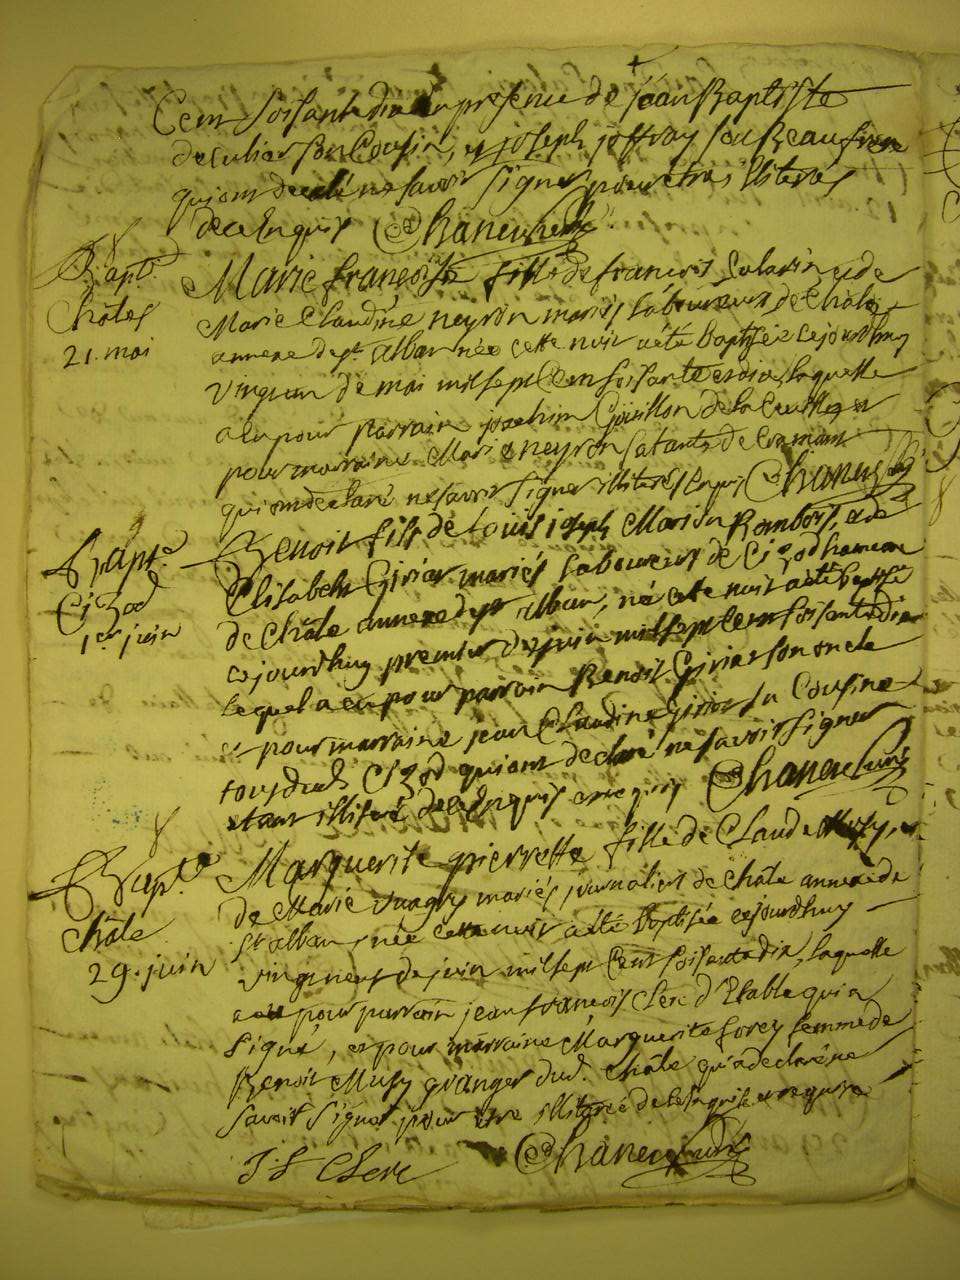 Cent soisante dix en presence de jéan Baptiste
de culier son Cousin, et joseph joffray son Beau frere
qui ont declaré ne savoir signer pour etres illiterés
de ce Enquis
Bapt.e
Châles
21. mai
Marie françoise fille de francois et de
Marie Claudine neyron mariés laboureurs de Châle
annexe de st. alban née cette nuit a été baptisée cejourdhuy
vingt un de mai mil sept Cent soisante et dix, laquelle
a eu pour parrain joachim Guillon de la et
pour marraine Marie neyron sa tante de
qui ont declaré ne savoir signer illiterés Enquis
Bapt.e
Cizod
1er juin
Benoit fils de Louis joseph Marion et de
Elisabeth Girier mariés laboureurs de Cizod hameau
de Châle annexe de st alban, né cette nuit a été baptisé
cejourdhuy premier de juin mil sept Cent soisante dix
lequel a eu pour parrain Benoit Girier son oncle
et pour marraine jean Claudine Girier sa Cousine
tous dud. Cizod qui ont declaré ne savoir signer
etant illiteré de ce Enquis
Bapt.e
châle
29. juin
Marguerite pierrette fille de Claude Musy, et
de Marie mariés journaliers de Châle annexe de
st alban, née cette nuit a été baptisée cejourdhuy
vingt neuf de juin mil sept Cent soisante dix, laquelle
a eu pour parrain jean françois Clerc d'Etable qui a
signé, et pour marraine Marguerite forey femme de
Benoit Musy granger dud. Châle qui a declaré ne
savoir signer pour etre illiterée de ce Enquise et requise
J f Clerc